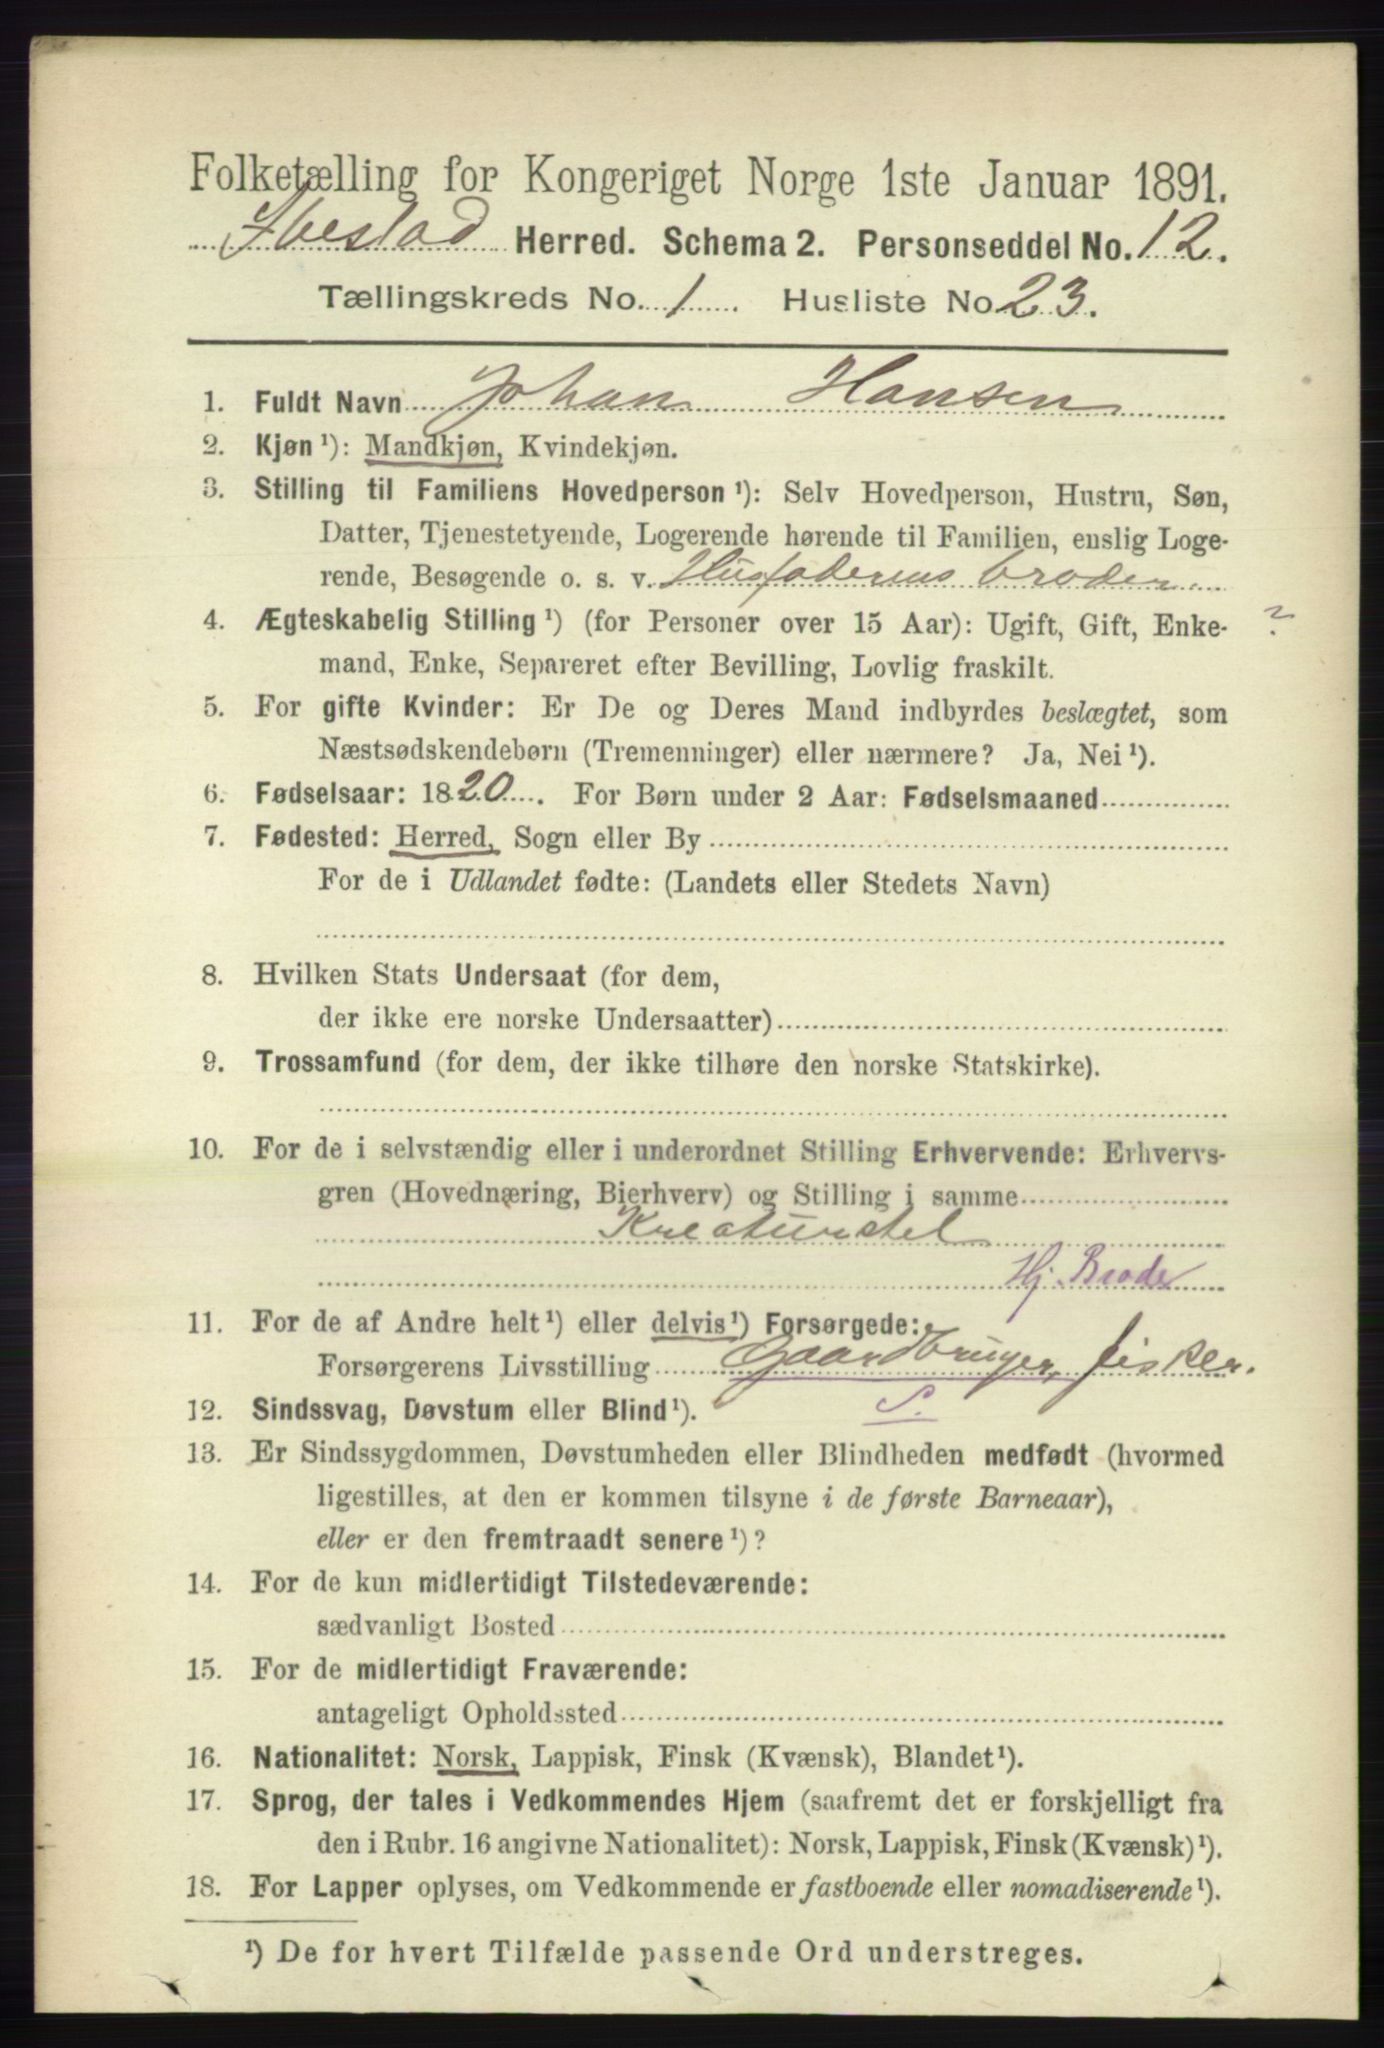 Folketælling for Kongeriget Norge 1ste Januar 1891.
Ibestad Herred. Schema 2. Personseddel No. 12.
Tællingskreds No. 1. Husliste No. 23.
1. Fuldt Navn Johan Hansen
2. Kjøn ¹): Mandkjøn, Kvindekjøn.
3. Stilling til Familiens Hovedperson ¹): Selv Hovedperson, Hustru, Søn,
Datter, Tjenestetyende, Logerende hørende til Familien, enslig Loge-
rende, Besøgende o. s. v. Husfaderens broder
4. Ægteskabelig Stilling ¹) (for Personer over 15 Aar): Ugift, Gift, Enke- ?
mand, Enke, Separeret efter Bevilling, Lovlig fraskilt.
5. For gifte Kvinder: Er De og Deres Mand indbyrdes beslægtet, som
Næstsødskendebørn (Tremenninger) eller nærmere? Ja, Nei ¹).
6. Fødselsaar: 1820. For Børn under 2 Aar: Fødselsmaaned
7. Fødested: Herred, Sogn eller By
For de i Udlandet fødte: (Landets eller Stedets Navn)
8. Hvilken Stats Undersaat (for dem,
der ikke ere norske Undersaatter)
9. Trossamfund (for dem, der ikke tilhøre den norske Statskirke).
10. For de i selvstændig eller i underordnet Stilling Erhvervende: Erhvervs-
gren (Hovednæring, Bierhverv) og Stilling i samme
Kreaturstel
Hj. Brode
11. For de af Andre helt ¹) eller delvis ¹) Forsørgede:
Forsørgerens Livsstilling Gaardbruger, fisker.
12. Sindssvag, Døvstum eller Blind ¹). S.
13. Er Sindssygdommen, Døvstumheden eller Blindheden medfødt (hvormed
ligestilles, at den er kommen tilsyne i de første Barneaar),
eller er den fremtraadt senere ¹)?
14. For de kun midlertidigt Tilstedeværende:
sædvanligt Bosted
15. For de midlertidigt Fraværende:
antageligt Opholdssted
16. Nationalitet: Norsk, Lappisk, Finsk (Kvænsk), Blandet ¹).
17. Sprog, der tales i Vedkommendes Hjem (saafremt det er forskjelligt fra
den i Rubr. 16 angivne Nationalitet): Norsk, Lappisk, Finsk (Kvænsk) ¹).
18. For Lapper oplyses, om Vedkommende er fastboende eller nomadiserende ¹).
¹) De for hvert Tilfælde passende Ord understreges.